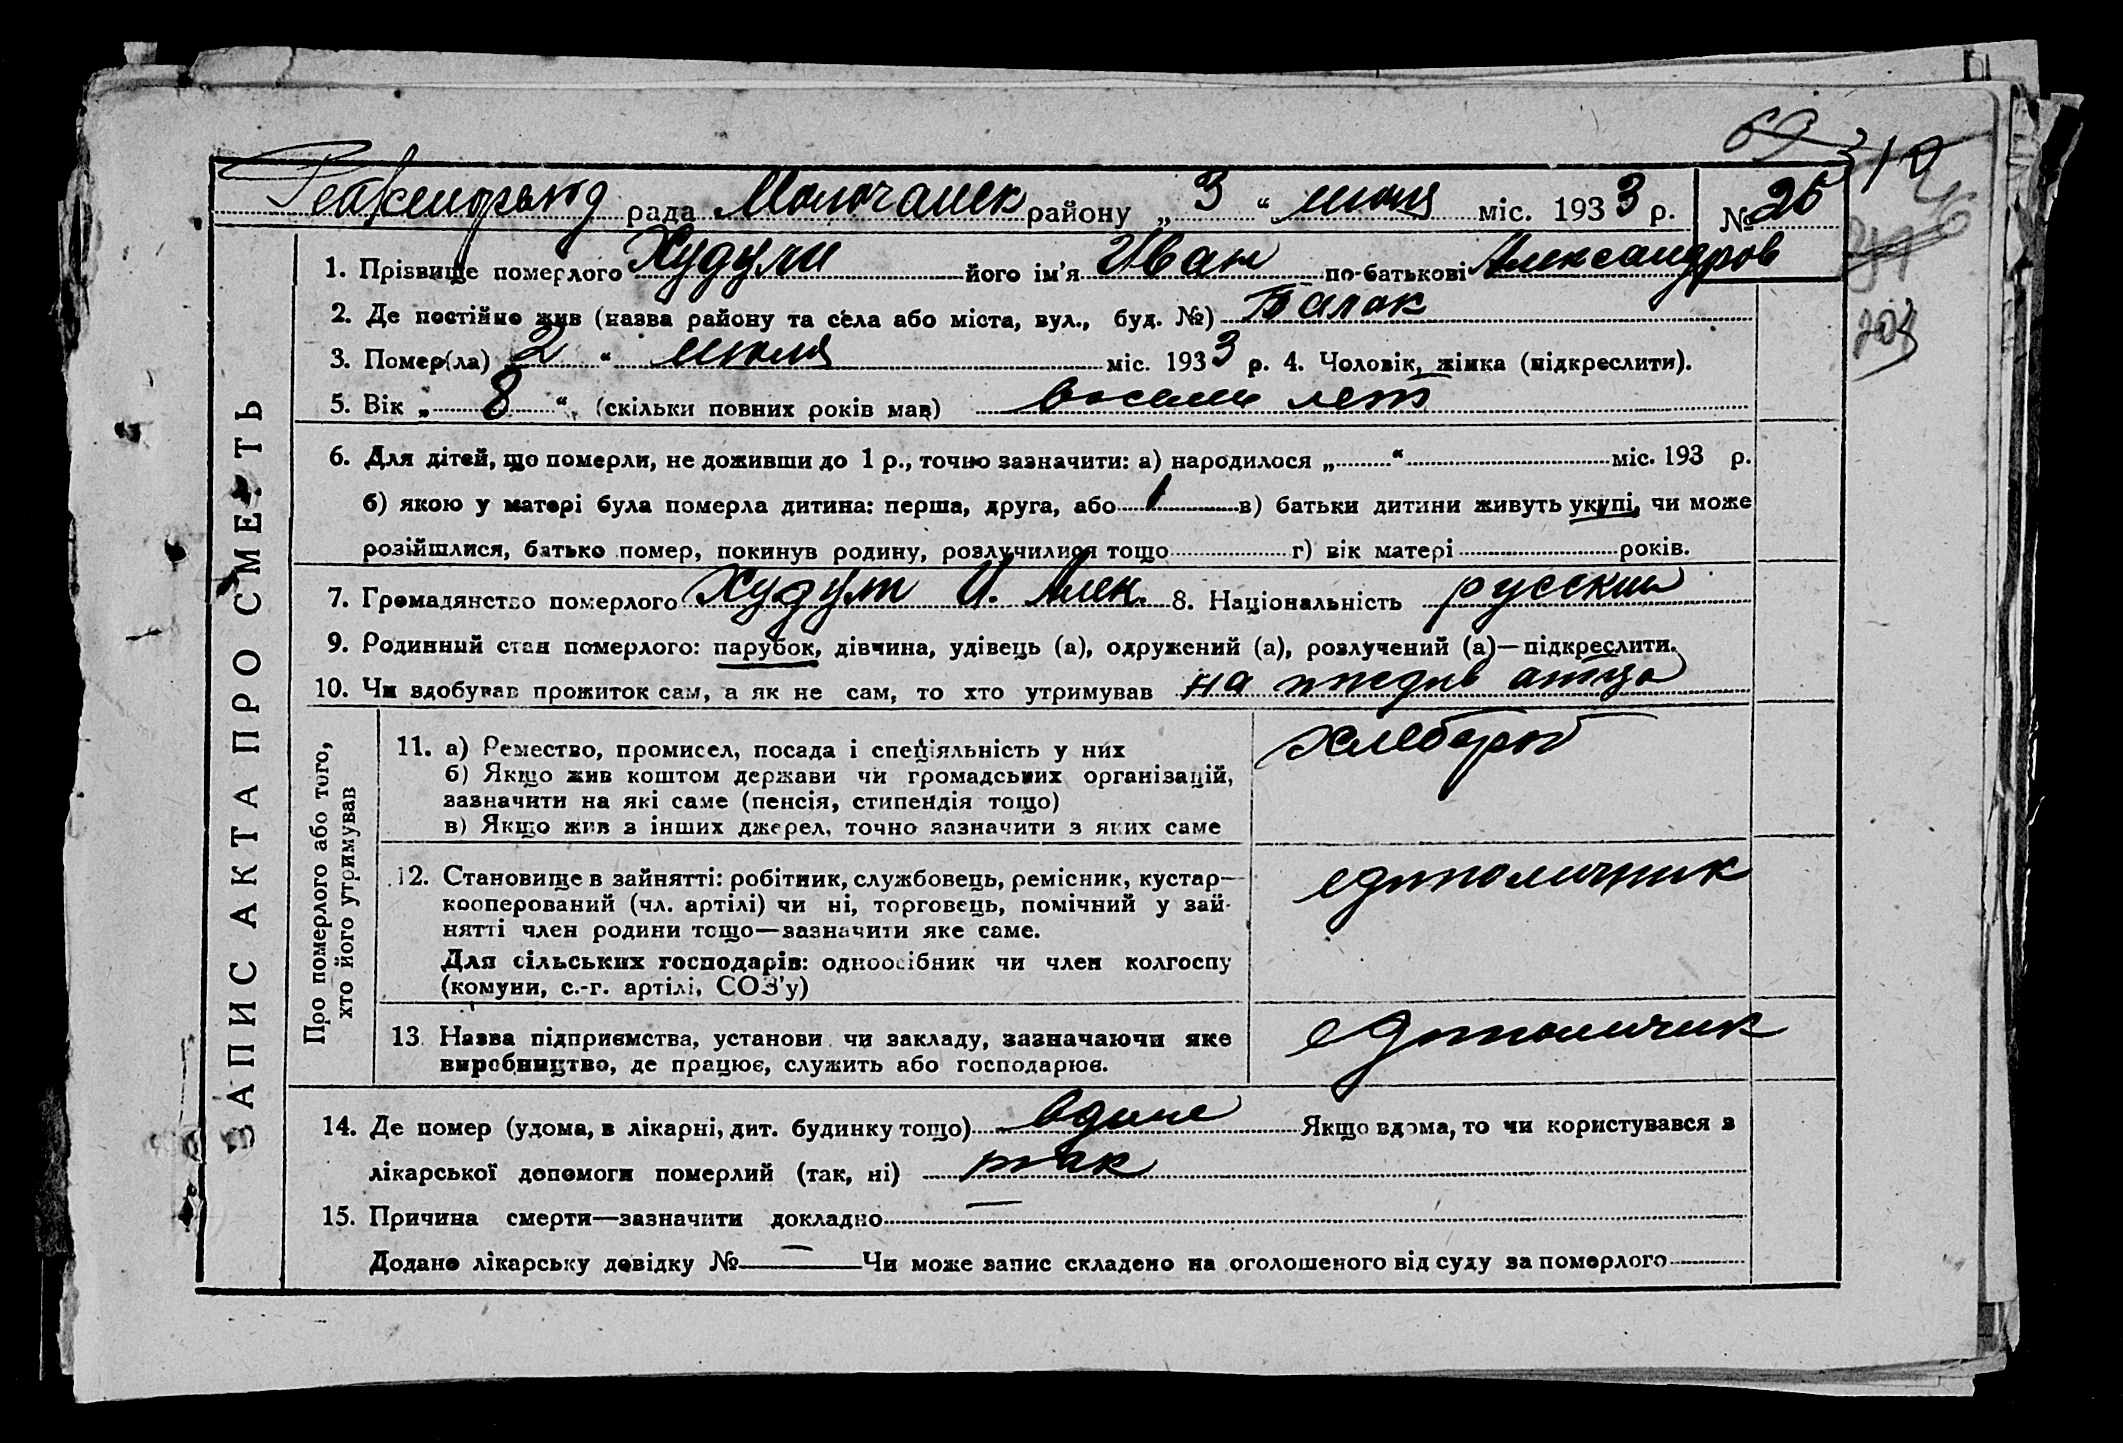 69 310
рада Молочанск району „ 3 “ июля міс. 1933 р. № 25
1. Прізвище померлого його ім'я Иван по-батькові Александров
2. Де постійно жив (назва району та села або міста, вул., буд. №) Токмак
3. Помер(ла) 2 “ июля міс. 1933 р. 4. Чоловік, жінка (підкреслити).
204
5. Вік „ 8 “, (скільки повних років мав) восемь лет
6. Для дітей, що померли, не доживши до 1 р., точно зазначити: а) народилося „ “ міс. 193 р.
б) якою у матері була померла дитина: перша, друга, або 1 в) батьки дитини живуть укупі, чи може
розійшлися, батько помер, покинув родину, розлучилися тощо г) вік матері років.
7. Громадянство померлого И. Алек. 8. Національність русский
9. Родинний стан померлого: парубок, дівчина, удівець (а), одружений (а), розлучений (а)—підкреслити.
10. Чи здобував прожиток сам, а як не сам, то хто утримував на иждив атца
ЗАПИС АКТА ПРО СМЕРТЬ
Про померлого або того,
хто його утримував
11. а) Ремество, промисел, посада і спеціяльність у них хлебороб
б) Якщо жив коштом держави чи громадських організацій,
зазначити на які саме (пенсія, стипендія тощо)
в) Якщо жив з інших джерел, точно зазначити з яких саме
12. Становище в зайнятті: робітник, службовець, ремісник, кустар— единоличник
кооперований (чл. артілі) чи ні, торговець, помічний у зай-
нятті член родини тощо—зазначити яке саме.
Для сільських господарів: одноосібник чи член колгоспу
(комуни, с.-г. артілі, СОЗ'у)
13. Назва підприємства, установи чи закладу, зазначаючи яке единоличник
виробництво, де працює, служить або господарює.
14. Де помер (удома, в лікарні, дит. будинку тощо) Якщо вдома, то чи користувався з
лікарської допомоги померлий (так, ні) так
15. Причина смерти—зазначити докладно —
Додано лікарську довідку № — Чи може запис складено на оголошеного від суду за померлого